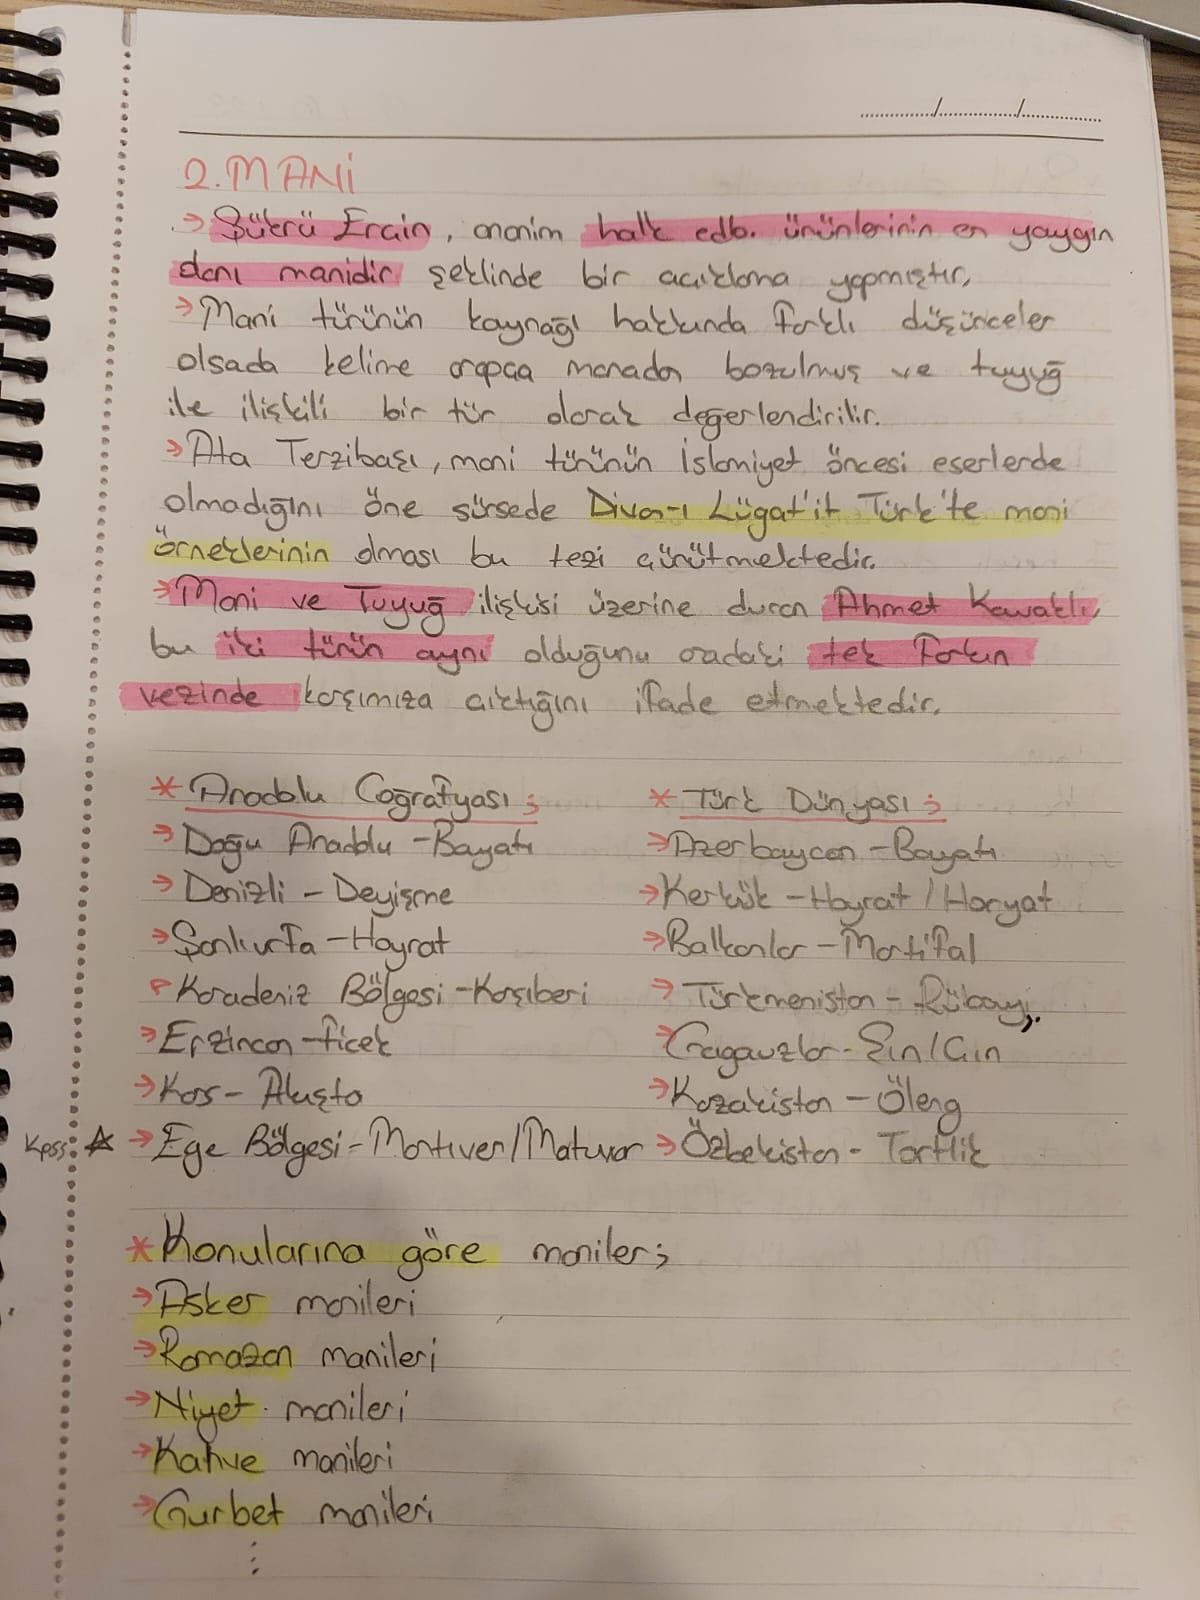 2. MANİ
→ Şükrü Elçin, anonim halk edb. ürünlerinin en yaygın
danı manidir şeklinde bir açıklama yapmıştır.
→ Mani türünün kaynağı hakkında farklı düşünceler
olsada kelime arapça manadan bozulmuş ve tuyuğ
ile ilişkili bir tür olarak değerlendirilir.
→ Ata Terzibaşı, mani türünün İslamiyet öncesi eserlerde
olmadığını öne sürsede Divan-ı Lügat'it Türk'te mani
örneklerinin olması bu tezi çürütmektedir.
→ Mani ve Tuyuğ ilişkisi üzerine duran Ahmet Kavaklı,
bu iki türün aynı olduğunu aradaki tek farkın
vezinde karşımıza çıktığını ifade etmektedir.
* Anadolu Coğrafyası ; * Türk Dünyası ;
→ Doğu Anadolu - Bayatı → Azerbaycan - Bayatı
→ Denizli - Deyişme → Kerkük - Hoyrat / Horyat
→ Şanlıurfa - Hoyrat → Balkanlar - Martifal
→ Karadeniz Bölgesi - Karşıberi → Türkmenistan - Rübayi
→ Erzincan - Ficek → Gagauzlar - Şın/Çın
→ Kars - Akışta → Kazakistan - Öleng
Kpss: ☆ → Ege Bölgesi - Mantıver/Matuvar → Özbekistan - Tortlik
* Konularına göre maniler ;
→ Asker manileri
→ Ramazan manileri
→ Niyet manileri
→ Kahve manileri
→ Gurbet manileri
⋮